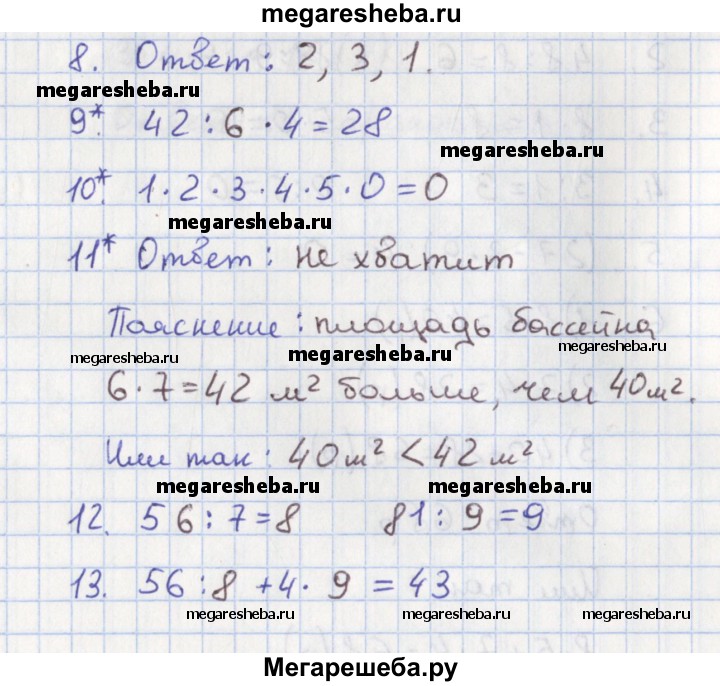 megaresheba.ru
8. Ответ: 2, 3, 1.
megaresheba.ru
9*. 42 : 6 · 4 = 28
megaresheba.ru
10*. 1 · 2 · 3 · 4 · 5 · 0 = 0
megaresheba.ru
11* Ответ: не хватит
Пояснение: площадь бассейна
megaresheba.ru megaresheba.ru megaresheba.ru
6 · 7 = 42 м² больше, чем 40 м².
Или так: 40 м² < 42 м²
megaresheba.ru megaresheba.ru
12. 56 : 7 = 8 81 : 9 = 9
13. 56 : 8 + 4 · 9 = 43
megaresheba.ru megaresheba.ru megaresheba.ru
Мегарешеба.ру